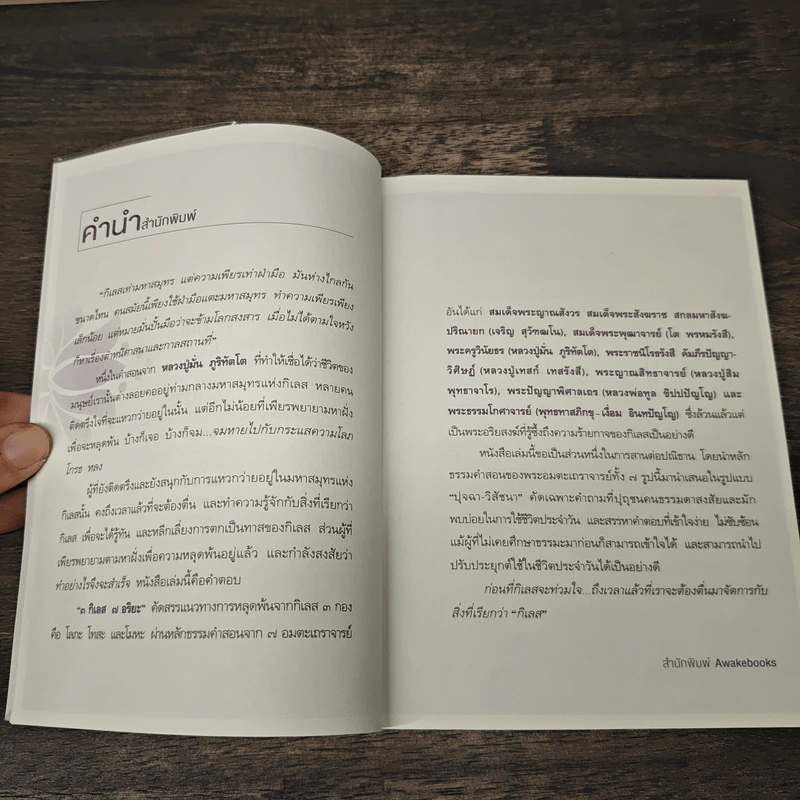 คำนำสำนักพิมพ์
“กิเลสเท่ามหาสมุทร แต่ความเพียรเท่าฝ่ามือ มันห่างไกลกัน
ขนาดไหน คนสมัยนี้เพียงใช้ฝ่ามือแตะมหาสมุทร ทำความเพียรเพียง
เล็กน้อย แต่หมายมั่นปั้นมือว่าจะข้ามโลกสงสาร เมื่อไม่ได้ตามใจหวัง
ก็หาเรื่องตำหนิศาสนาและกาลสถานที่”
หนึ่งในคำสอนจาก หลวงปู่มั่น ภูริทัตโต ที่ทำให้เชื่อได้ว่าชีวิตของ
มนุษย์เรานั้นต่างลอยคออยู่ท่ามกลางมหาสมุทรแห่งกิเลส หลายคน
ติดตรึงใจที่จะแหวกว่ายอยู่ในนั้น แต่อีกไม่น้อยที่เพียรพยายามหาฝั่ง
เพื่อจะหลุดพ้น บ้างก็เจอ บ้างก็จม...จมหายไปกับกระแสความโลภ
โกรธ หลง
ผู้ที่ยังติดตรึงและยังสนุกกับการแหวกว่ายอยู่ในมหาสมุทรแห่ง
กิเลสนั้น คงถึงเวลาแล้วที่จะต้องตื่น และทำความรู้จักกับสิ่งที่เรียกว่า
กิเลส เพื่อจะได้รู้ทัน และหลีกเลี่ยงการตกเป็นทาสของกิเลส ส่วนผู้ที่
เพียรพยายามตามหาฝั่งเพื่อความหลุดพ้นอยู่แล้ว และกำลังสงสัยว่า
ทำอย่างไรจึงจะสำเร็จ หนังสือเล่มนี้คือคำตอบ
“๓ กิเลส ๗ อริยะ” คัดสรรแนวทางการหลุดพ้นจากกิเลส ๓ กอง
คือ โลภะ โทสะ และโมหะ ผ่านหลักธรรมคำสอนจาก ๗ อมตะเถราจารย์
อันได้แก่ สมเด็จพระญาณสังวร สมเด็จพระสังฆราช สกลมหาสังฆ-
ปริณายก (เจริญ สุวัฑฒโน), สมเด็จพระพุฒาจารย์ (โต พรหมรังสี),
พระครูวินัยธร (หลวงปู่มั่น ภูริทัตโต), พระราชนิโรธรังสี คัมภีรปัญญา-
วิศิษฎ์ (หลวงปู่เทสก์ เทสรังสี), พระญาณสิทธาจารย์ (หลวงปู่สิม
พุทธาจาโร), พระปัญญาพิศาลเถร (หลวงพ่อทูล ขิปปปัญโญ) และ
พระธรรมโกศาจารย์ (พุทธทาสภิกขุ-เงื่อม อินทปัญโญ) ซึ่งล้วนแล้วแต่
เป็นพระอริยสงฆ์ที่รู้ซึ้งถึงความร้ายกาจของกิเลสเป็นอย่างดี
หนังสือเล่มนี้ขอเป็นส่วนหนึ่งในการสานต่อปณิธาน โดยนำหลัก
ธรรมคำสอนของพระอมตะเถราจารย์ทั้ง ๗ รูปนี้มานำเสนอในรูปแบบ
“ปุจฉา-วิสัชนา” คัดเฉพาะคำถามที่ปุถุชนคนธรรมดาสงสัยและมัก
พบบ่อยในการใช้ชีวิตประจำวัน และสรรหาคำตอบที่เข้าใจง่าย ไม่ซับซ้อน
แม้ผู้ที่ไม่เคยศึกษาธรรมะมาก่อนก็สามารถเข้าใจได้ และสามารถนำไป
ปรับประยุกต์ใช้ในชีวิตประจำวันได้เป็นอย่างดี
ก่อนที่กิเลสจะท่วมใจ...ถึงเวลาแล้วที่เราจะต้องตื่นมาจัดการกับ
สิ่งที่เรียกว่า “กิเลส”
สำนักพิมพ์ Awakebooks